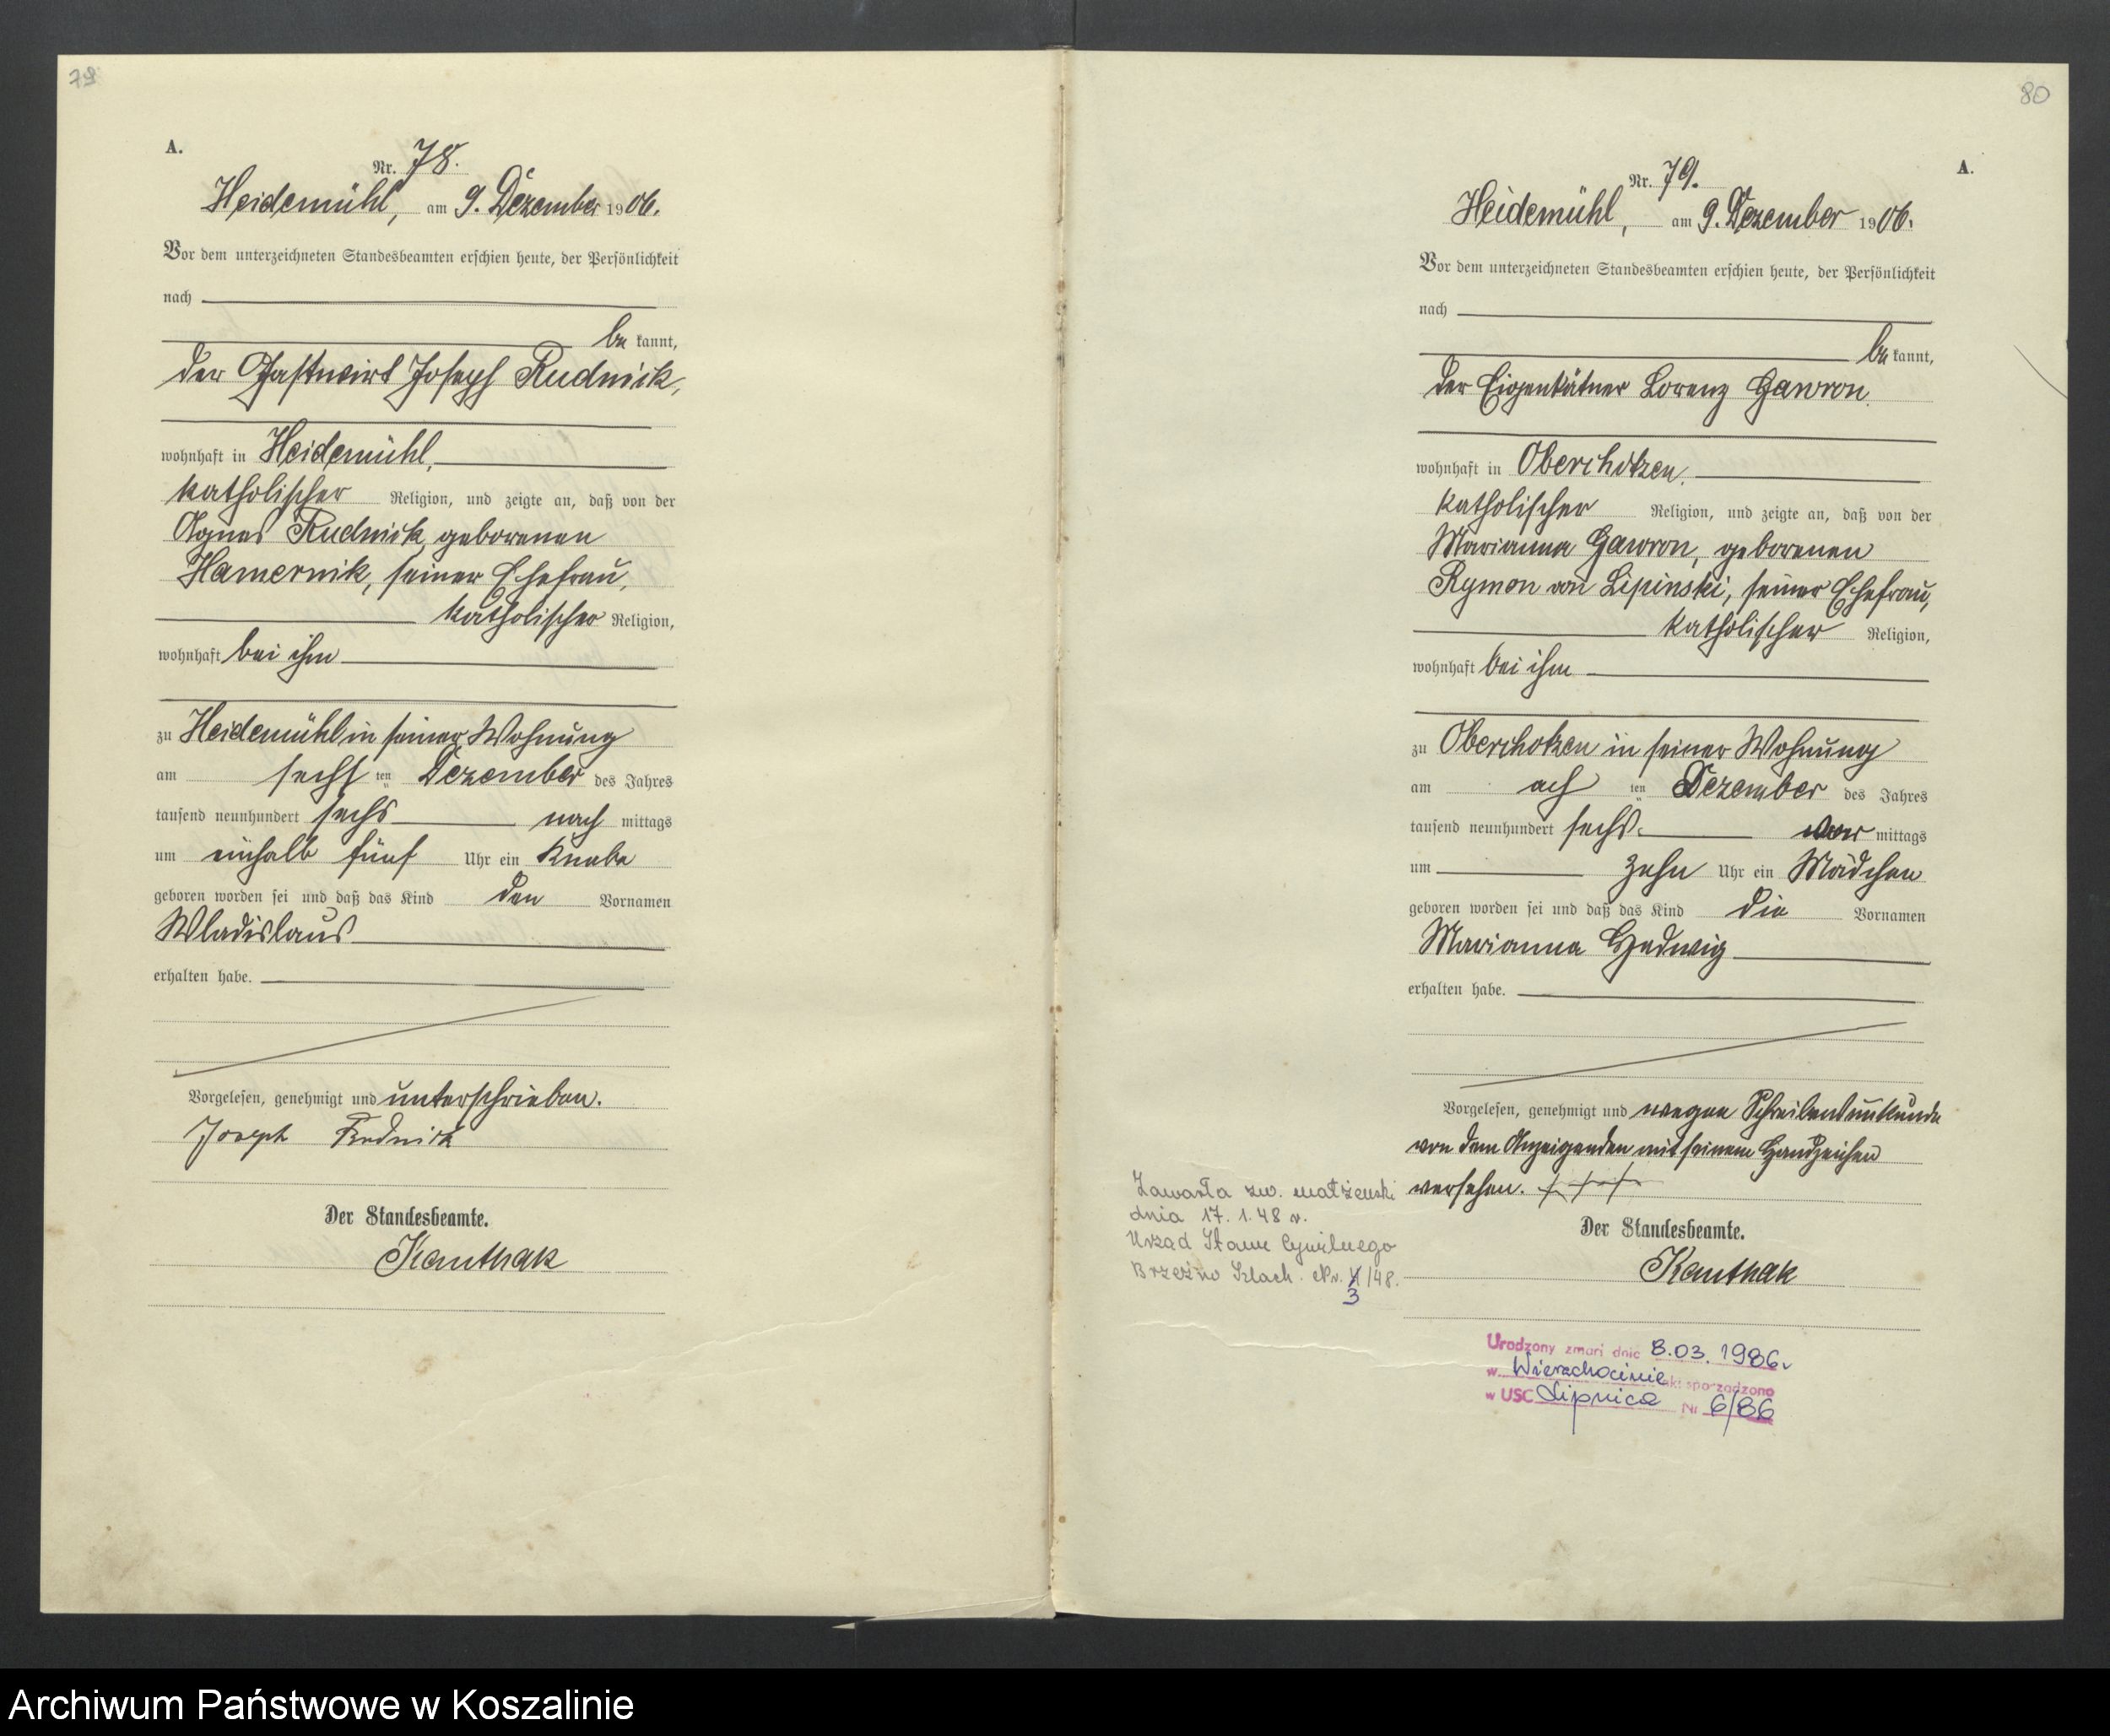 79
A.
Nr. 78.
Heidemühl, am 9. Dezember 1906.
Vor dem unterzeichneten Standesbeamten erschien heute, der Persönlichkeit
nach
be kannt,
der Gastwirt Joseph Rudnick,
wohnhaft in Heidemühl,
katholischer Religion, und zeigte an, daß von der
Agnes Rudnick, geborenen
Hamernik, seiner Ehefrau,
katholischer Religion,
wohnhaft bei ihm
zu Heidemühl in seiner Wohnung
am sechs ten Dezember des Jahres
tausend neunhundert sechs nach mittags
um einhalb fünf Uhr ein Knabe
geboren worden sei und daß das Kind den Vornamen
Wladislaus
erhalten habe.
Vorgelesen, genehmigt und unterschrieben.
Joseph Rudnick
Der Standesbeamte.
Kanthak
80
A.
Nr. 79.
Heidemühl, am 9. Dezember 1906.
Vor dem unterzeichneten Standesbeamten erschien heute, der Persönlichkeit
nach
be kannt,
der Eigenkätner Lorenz Gawron
wohnhaft in Oberchotzen,
katholischer Religion, und zeigte an, daß von der
Marianna Gawron, geborenen
Rymon von Lipinski, seiner Ehefrau,
katholischer Religion,
wohnhaft bei ihm
zu Oberchotzen in seiner Wohnung
am ach ten Dezember des Jahres
tausend neunhundert sechs vor mittags
um zehn Uhr ein Mädchen
geboren worden sei und daß das Kind die Vornamen
Marianna Hedwig
erhalten habe.
Vorgelesen, genehmigt und wegen Schreibensunkunde
von dem Anzeigenden mit seinem Handzeichen
versehen. + + +
Der Standesbeamte.
Kanthak
Zawarła zw. małżeński
dnia 17. 1. 48 r.
Urząd Stanu Cywilnego
Brzeźno Szlach. Nr. /48.
3
Urodzony zmarł dnia 8.03.1986r
w Wierzchocinie akt sporządzono
w USC Lipnica Nr 6/86
Archiwum Państwowe w Koszalinie